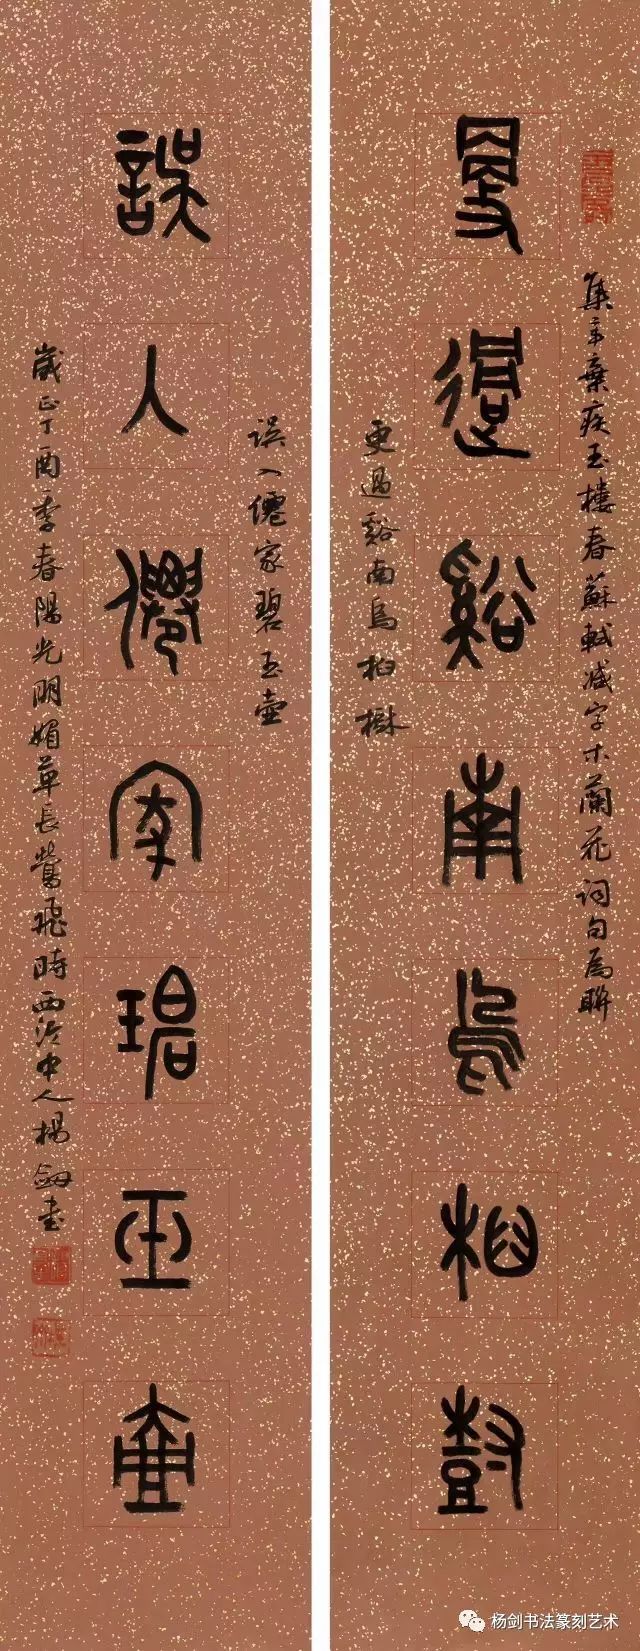 集辛棄疾玉樓春蘇軾減字木蘭花詞句為聯
更過谿南烏桕樹
更過谿南烏桕樹
誤入僊家碧玉壺
誤入僊家碧玉壺
歲在丁酉季春陽光明媚草長鶯飛時西泠中人楊劍書
杨剑书法篆刻艺术